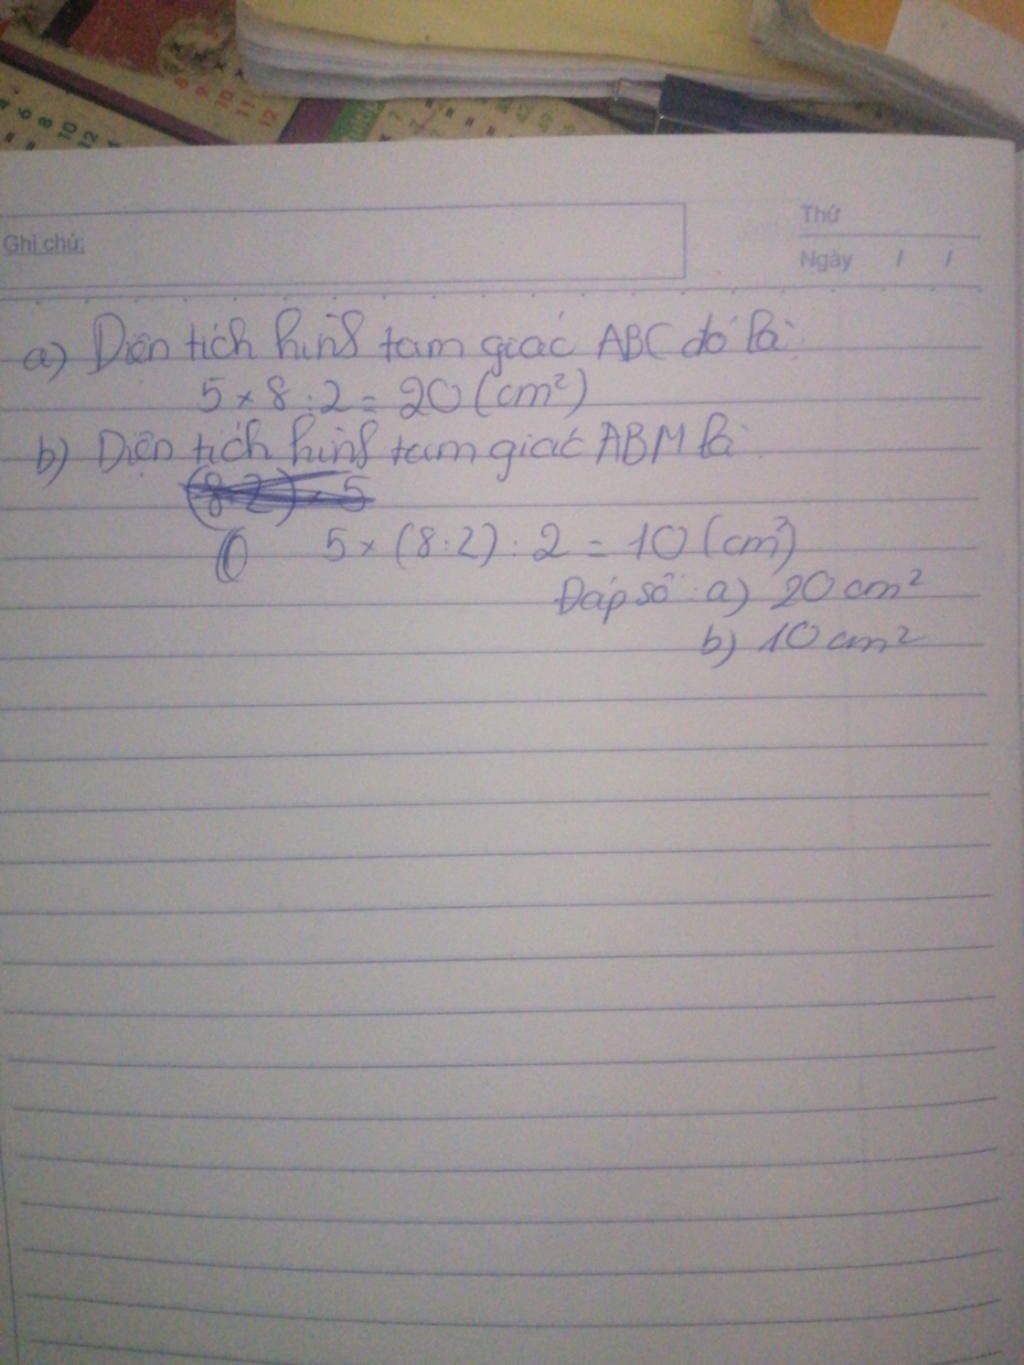 Ghi chú:
Thứ
Ngày / /
a) Diện tích hình tam giác ABC đó là:
5 × 8 : 2 = 20 (cm²)
b) Diện tích hình tam giác ABM là:
5 × (8 : 2) : 2 = 10 (cm²)
Đáp số: a) 20 cm²
b) 10 cm²